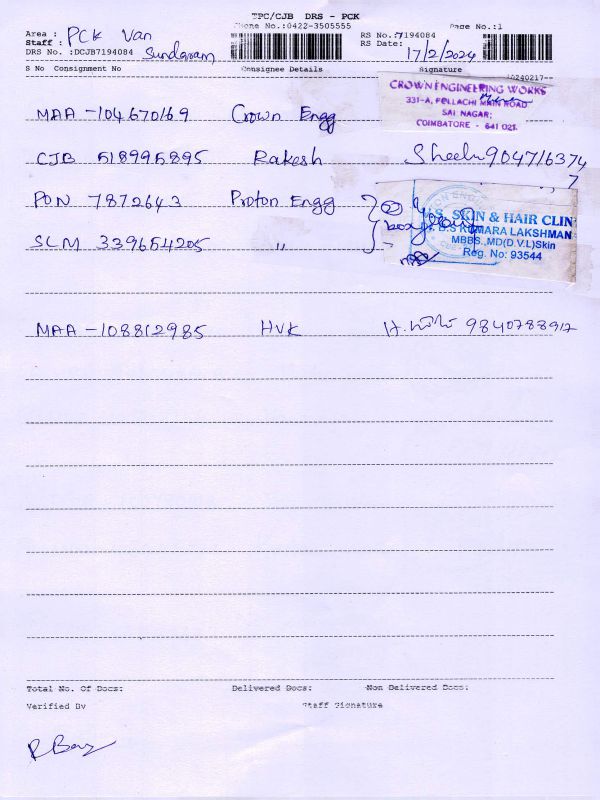 TPC/CJB DRS - PCK
Phone No.:0422-3505555 Page No.:1
Area : PCK Van RS No.:7194084
Staff : Sundaram RS Date: 17/2/2024
DRS No. :DCJB7194084
S No Consignment No Consignee Details Signature
20240217--
MAA -104670169 Crown Engg
CROWN ENGINEERING WORKS
331-A, POLLACHI MAIN ROAD
SAI NAGAR;
COIMBATORE - 641 021.
CJB 518995895 Rakesh Sheela 9047163747
PON 7872643 Proton Engg
SLM 339654205 "
S. SKIN & HAIR CLIN
Dr. D.S KUMARA LAKSHMAN
MBBS.,MD(D.V.L)Skin
Reg. No: 93544
MAA -108812985 HVK H. 9840788917
Total No. Of Docs: Delivered Docs: Non Delivered Docs:
Verified By Staff Signature